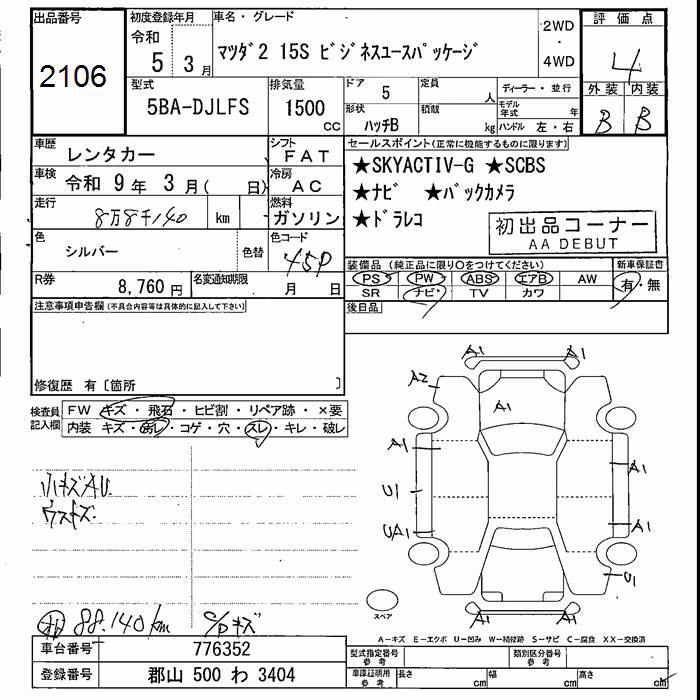 出品番号
2106
初度登録年月 車名・グレード
令和 5 3 月
マツダ2 15S ビジネスユースパッケージ
2WD
・
4WD
評価点
4
外装 内装
B B
型式 5BA-DJLFS
排気量 1500 cc
ドア 5
形状 ハッチB
定員 人
積載 kg
ディーラー・並行
モデル年式 年
ハンドル 左・右
車歴 レンタカー
シフト FAT
車検 令和 9 年 3 月( 日)
冷房 AC
走行 8万8千140 km
燃料 ガソリン
色 シルバー 色替
色コード 45P
R券 8,760 円
名変通知期限 月 日
セールスポイント(正常に機能するものに限ります)
★SKYACTIV-G ★SCBS
★ナビ ★バックカメラ
★ドラレコ
初出品コーナー
AA DEBUT
装備品(純正品に限り○をつけてください) 新車保証書
PS PW ABS エアB AW 有・無
SR ナビ TV カワ
後日品
注意事項申告欄(不具合内容等は具体的に記入して下さい)
修復歴 有〔箇所 〕
検査員記入欄
FW キズ・飛石・ヒビ割・リペア跡・×要
内装 キズ・汚レ・コゲ・穴・スレ・キレ・破レ
小キズAU
ウスキズ
88.140km
C/Pキズ
A1 A1
A2
A1
A1 A1
U1
UA1 A1
U1
A1 A1
スペア
A-キズ E-エクボ U-凹み W-補修跡 S-サビ C-腐食 XX-交換済
車台番号 776352
登録番号 郡山 500 わ 3404
型式指定番号 参考 類別区分番号 参考
車庫証明用 参考 長さ cm 幅 cm 高さ cm